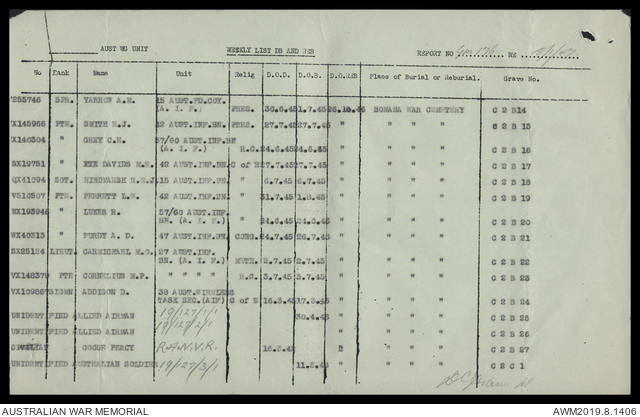 AUST WG UNIT WEEKLY LIST DB AND REB REPORT NO WE
No Rank Name Unit Relig D.O.D. D.O.B. D.O.REB Place of Burial or Reburial. Grave No.
SPR. YARROW A.M. 15 AUST.FD.COY. (A.I.F.) PRES. 30.6.45 1.7.45 26.10.45 BOMANA WAR CEMETERY C 2 B 14
X145966 PTE. SMITH E.J. 42 AUST.INF.BN. PRES. 27.7.45 27.7.45 " " C 2 B 15
X140304 " GREY C.H. 57/60 AUST.INF.BN (A.I.F.) R.C. 24.6.45 " " C 2 B 16
SX19751 " DAVIDS 42 AUST.INF.BN. C of E 27.7.45 27.7.45 " " C 2 B 17
QX41094 SGT. HINDMARSH 15 AUST.INF.BN. " 6.7.45 6.7.45 " " C 2 B 18
PTE. PERRETT L.N. 42 AUST.INF.BN. " 31.7.45 1.8.45 " " C 2 B 19
NX193946 " 57/60 AUST.INF. BN. (A.I.F.) " 24.6.45 " " C 2 B 20
WX40313 " PURDY A.D. 47 AUST.INF.BN. CONG. 24.7.45 26.7.45 " " C 2 B 21
SX25124 LIEUT. CARMICHAEL M.G. 27 AUST.INF. BN. (A.I.F.) METH. 2.7.45 2.7.45 " " C 2 B 22
PTE CORNELIUS M.P. " " " " 3.7.45 3.7.45 " " C 2 B 23
ADDISON D. 38 AUST.WIRELESS TASK SEC.(AIF) C of E 16.3.45 17.3.45 " " C 2 B 24
UNIDENTIFIED ALLIED AIRMAN 19/127/1/1 30.4.45 " " C 2 B 25
UNIDENTIFIED ALLIED AIRMAN 19/127/2/1 " " C 2 B 26
PERCY R.A.N.V.R. " C 2 B 27
UNIDENTIFIED AUSTRALIAN SOLDIER 19/127/3/1 " " C 2 C 1
AUSTRALIAN WAR MEMORIAL AWM2019.8.1406